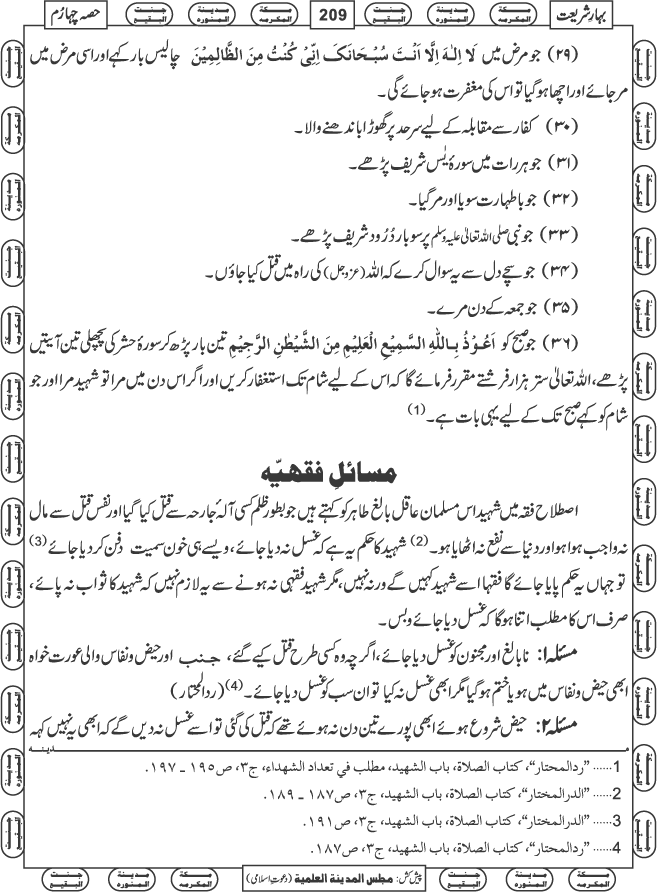 بہارِ شریعت
209
حصہ چہارم
(۲۹) جو مرض میں لَا اِلٰہَ اِلَّا اَنْتَ سُبْحَانَکَ اِنِّیْ کُنْتُ مِنَ الظَّالِمِیْنَ چالیس بار کہے اور اسی مرض میں
مرجائے اور اچھا ہوگیا تو اس کی مغفرت ہو جائے گی۔
(۳۰) کفار سے مقابلہ کے لیے سرحد پر گھوڑا باندھنے والا۔
(۳۱) جو ہر رات میں سورۂ یٰس شریف پڑھے۔
(۳۲) جو باطہارت سویا اور مرگیا۔
(۳۳) جو نبی صلی اللہ تعالیٰ علیہ وسلم پر سو بار دُرُود شریف پڑھے۔
(۳۴) جو سچے دل سے یہ سوال کرے کہ اللہ (عزوجل) کی راہ میں قتل کیا جاؤں۔
(۳۵) جو جمعہ کے دن مرے۔
(۳۶) جو صبح کو اَعُوْذُ بِاللّٰهِ السَّمِیْعِ الْعَلِیْمِ مِنَ الشَّیْطٰنِ الرَّجِیْمِ تین بار پڑھ کر سورۂ حشر کی پچھلی تین آیتیں
پڑھے، اللہ تعالیٰ ستر ہزار فرشتے مقرر فرمائے گا کہ اس کے لیے شام تک استغفار کریں اور اگر اس دن میں مرا تو شہید مرا اور جو
شام کو کہے صبح تک کے لیے یہی بات ہے۔ (1)
مسائلِ فقهيّه
اصطلاح فقہ میں شہید اس مسلمان عاقل بالغ طاہر کو کہتے ہیں جو بطور ظلم کسی آلۂ جارحہ سے قتل کیا گیا اور نفسِ قتل سے مال
نہ واجب ہوا ہو اور دنیا سے نفع نہ اٹھایا ہو۔ (2) شہید کا حکم یہ ہے کہ غسل نہ دیا جائے، ویسے ہی خون سمیت دفن کر دیا جائے (3)
تو جہاں یہ حکم پایا جائے گا فقہا اسے شہید کہیں گے ورنہ نہیں، مگر شہید فقہی نہ ہونے سے یہ لازم نہیں کہ شہید کا ثواب نہ پائے،
صرف اس کا مطلب اتنا ہوگا کہ غسل دیا جائے وبس۔
مسئلہ ۱: نابالغ اور مجنون کو غسل دیا جائے، اگرچہ وہ کسی طرح قتل کیے گئے، جنب اور حیض و نفاس والی عورت خواہ
ابھی حیض و نفاس میں ہو یا ختم ہوگیا مگر ابھی غسل نہ کیا تو ان سب کو غسل دیا جائے۔ (4) (ردالمحتار)
مسئلہ ۲: حیض شروع ہوئے ابھی پورے تین دن نہ ہوئے تھے کہ قتل کی گئی تو اسے غسل نہ دیں گے کہ ابھی یہ نہیں کہہ
1...... ”ردالمحتار“، كتاب الصلاة، باب الشهيد، مطلب في تعداد الشهداء، ج۳، ص۱۹۵ ـ ۱۹۷.
2...... ”الدرالمختار“، كتاب الصلاة، باب الشهيد، ج۳، ص۱۸۷ ـ ۱۸۹.
3...... ”الدرالمختار“، كتاب الصلاة، باب الشهيد، ج۳، ص۱۹۱.
4...... ”ردالمحتار“، كتاب الصلاة، باب الشهيد، ج۳، ص۱۸۷.
پیش کش: مجلس المدينة العلمية (دعوتِ اسلامی)